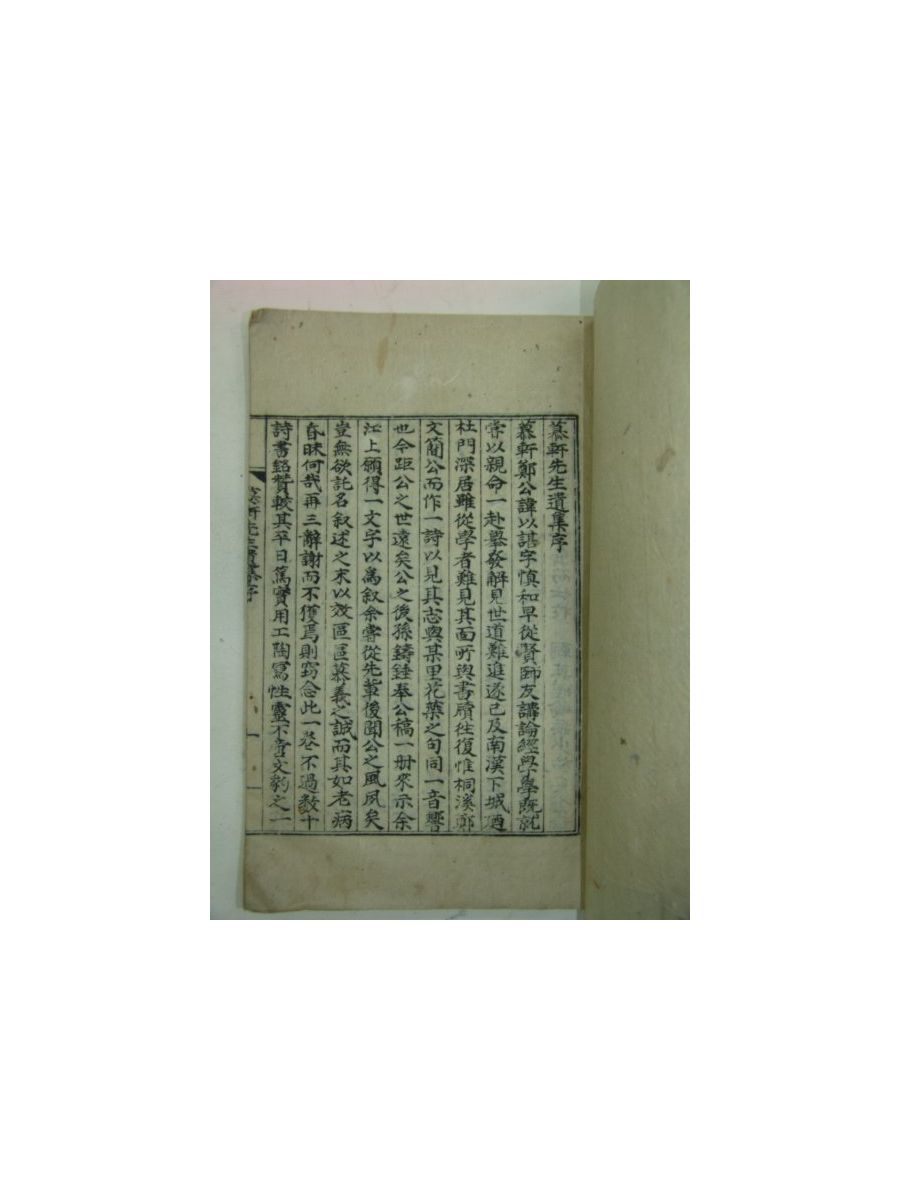 慕軒先生遺集序
慕軒鄭公諱以諶字愼和早從賢師友講論經學學既就
嘗以親命一赴擧發解見世道難進遂已及南漢下城廼
杜門深居雖從學者難見其面所與書牘往復惟桐溪鄭
文簡公而作一詩以見其志與某里花葉之句同一音響
也今距公之世遠矣公之後孫鑄錘奉公稿一册來示余
江上願得一文字以爲叙余嘗從先輩後聞公之風夙矣
豈無欲託名叙述之末以效區區慕義之誠而其如老病
昏昧何哉再三辭謝而不獲焉則窃念此一卷不過数十
詩書銘贊較其平日篤實用工陶寫性靈不啻文豹之一
慕軒先生遺集序
一